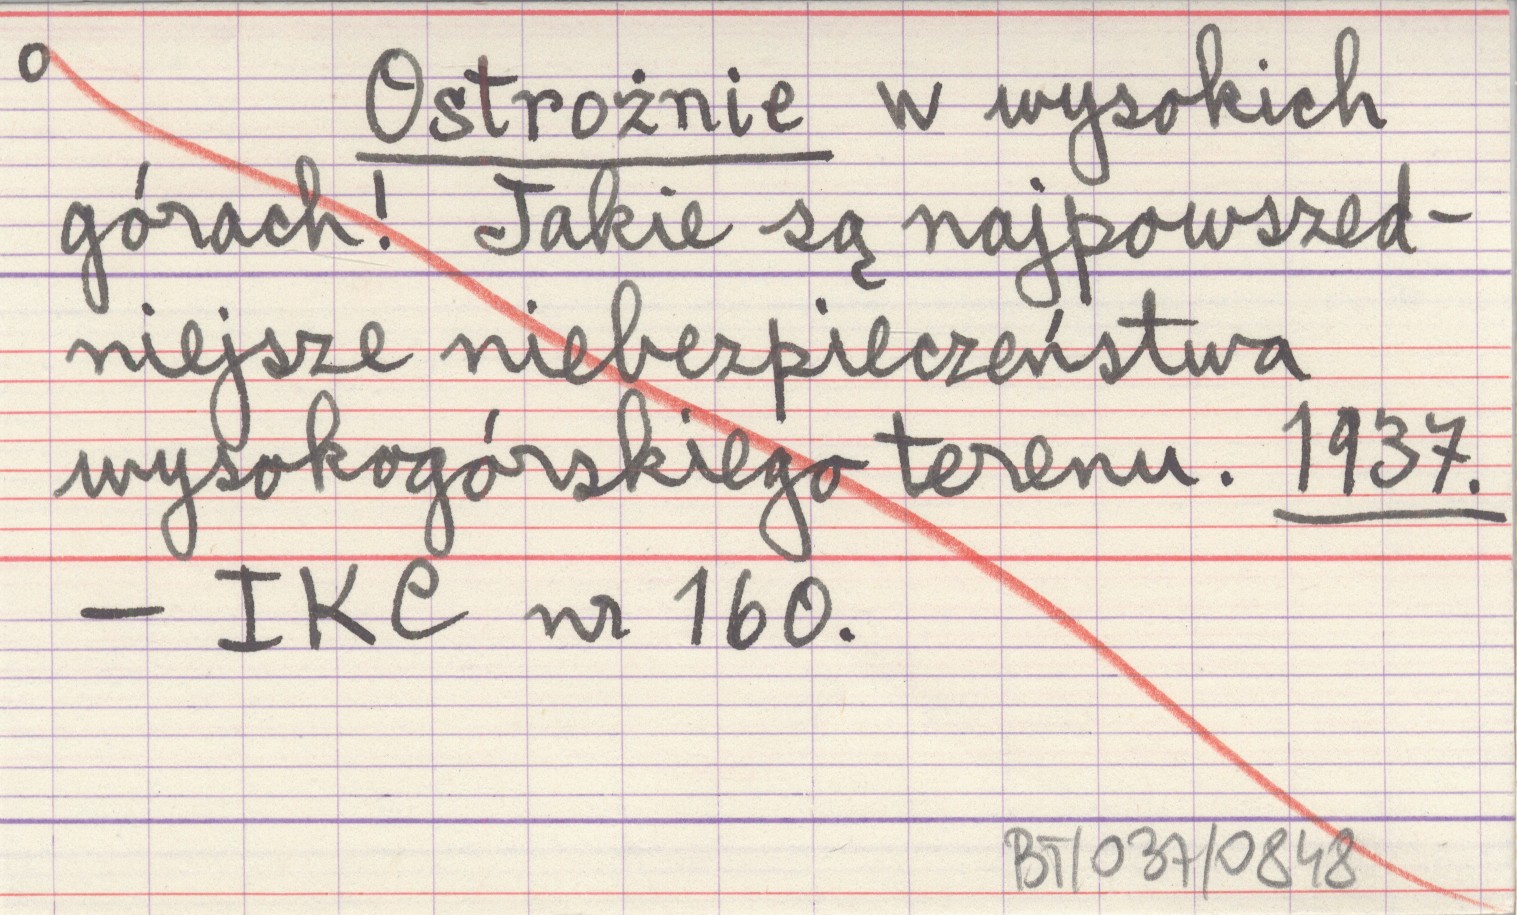 o
Ostrożnie w wysokich
górach! Jakie są najpowszed-
niejsze niebezpieczeństwa
wysokogórskiego terenu. 1937.
— IKC nr 160.
BT/037/0848